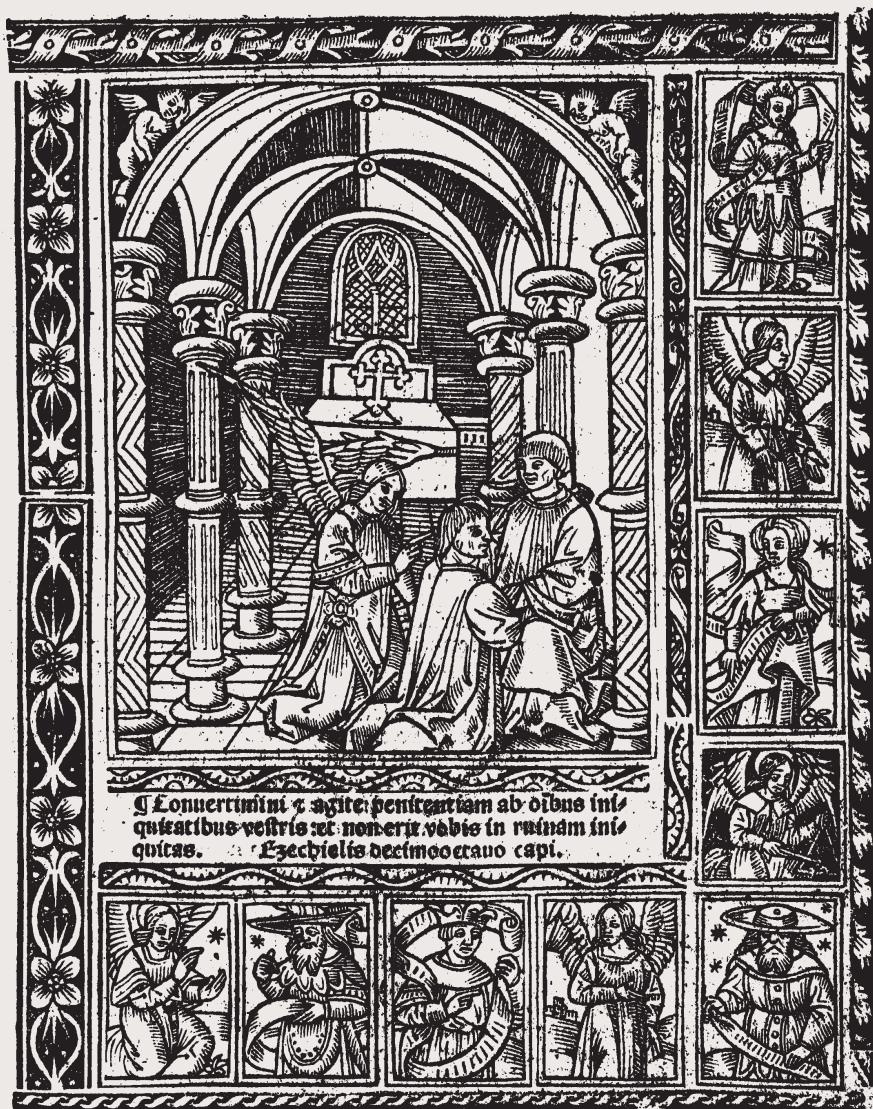 ¶ Conuertimini ⁊ agite penitentiam ab oibus ini⸗
quitatibus vestris : et non erit vobis in ruinam ini⸗
quitas. Ezechielis decimooctauo capi.